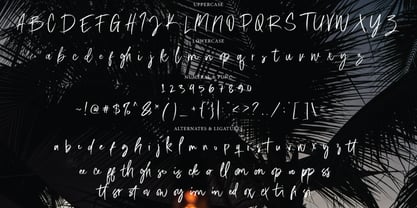 UPPERCASE
A B C D E F G H I J K L M N O P Q R S T U V W X Y Z
LOWERCASE
a b c d e f g h i j k l m n o p q r s t u v w x y z
NUMERAL & PUNC
1 2 3 4 5 6 7 8 9 0
~ ! @ # $ % ^ & * ( ) _ + { } | : " < > ? . , / ; ' [ ] \ =
ALTERNATES & LIGATURE
a b c d e f g h i j k l m n o p q r s t u v w x y z tt
ee cc ff th gh sc is ck ol ll on om op a pp ss